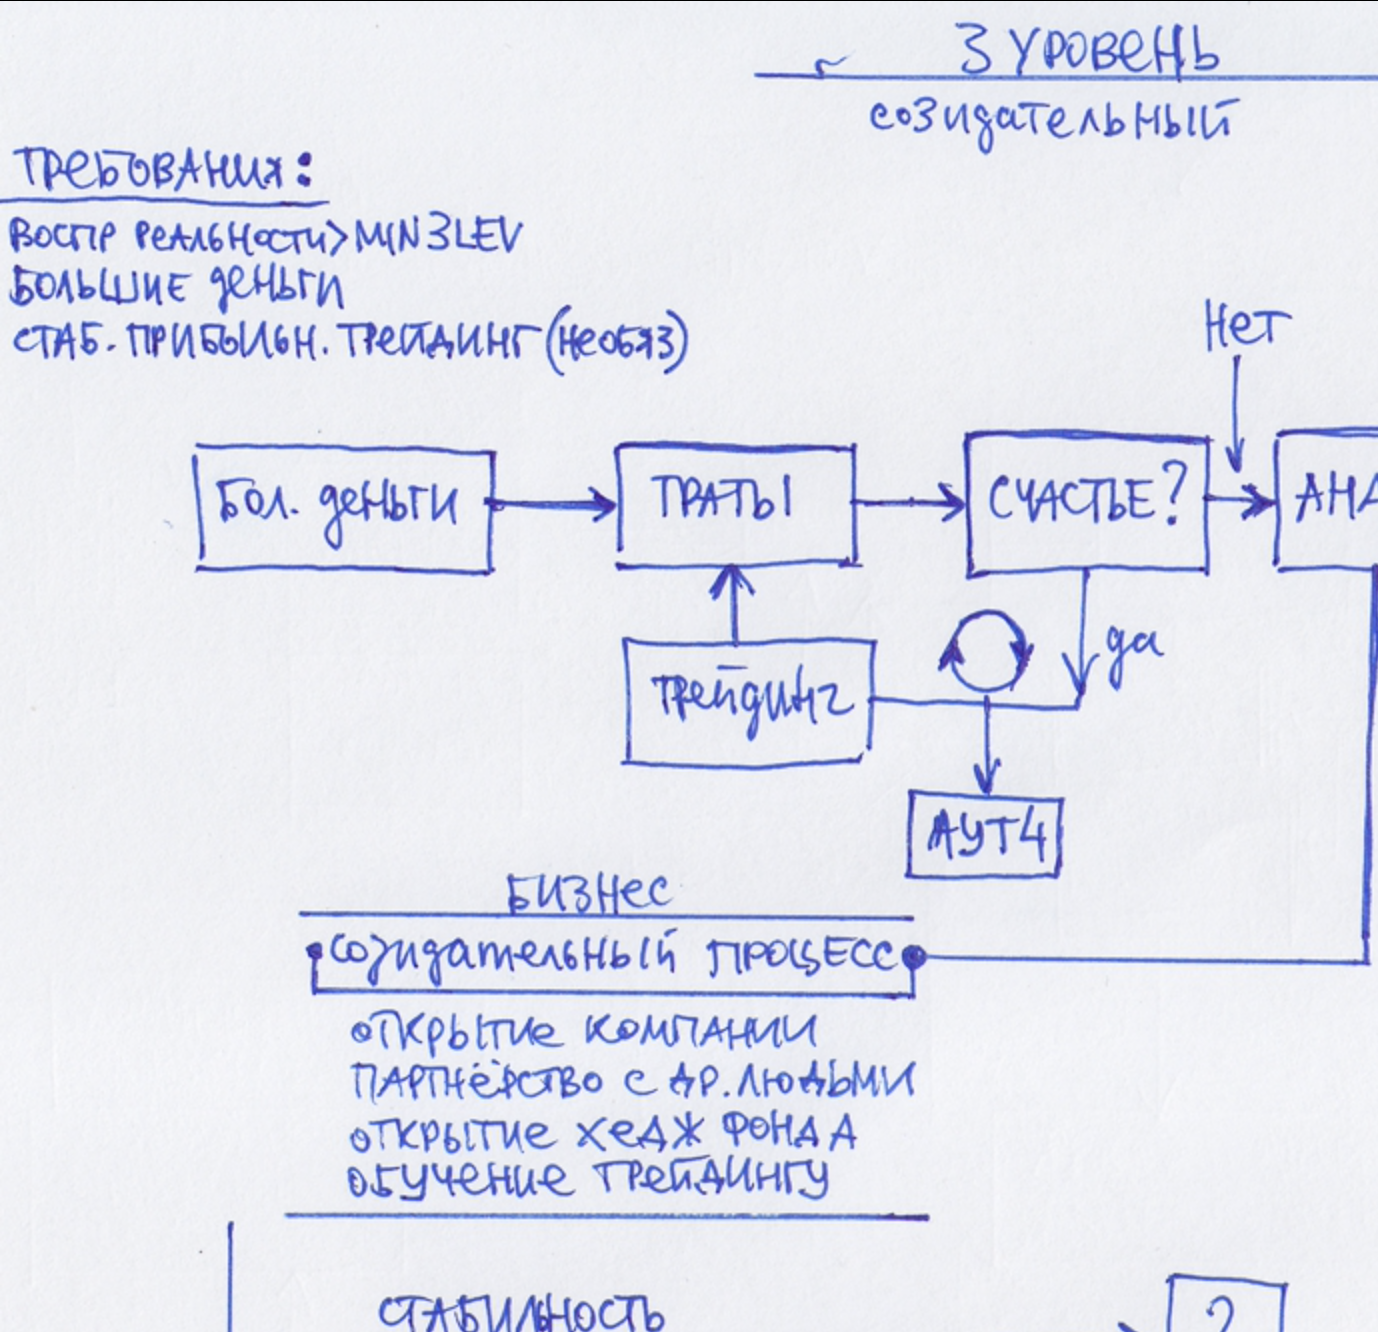 3 УРОВЕНЬ
созидательный
ТРЕБОВАНИЯ:
ВОСПР РЕАЛЬНОСТИ>MIN3LEV
БОЛЬШИЕ ДЕНЬГИ
СТАБ. ПРИБЫЛЬН. ТРЕЙДИНГ (НЕОБЯЗ)
Нет
Бол. деньги
ТРАТЫ
СЧАСТЬЕ?
АНА
да
Трейдинг
АУТ4
БИЗНЕС
созидательный ПРОЦЕСС
ОТКРЫТИЕ КОМПАНИИ
ПАРТНЁРСТВО С ДР. ЛЮДЬМИ
ОТКРЫТИЕ ХЕДЖ ФОНДА
ОБУЧЕНИЕ ТРЕЙДИНГУ
СТАБИЛЬНОСТЬ
?